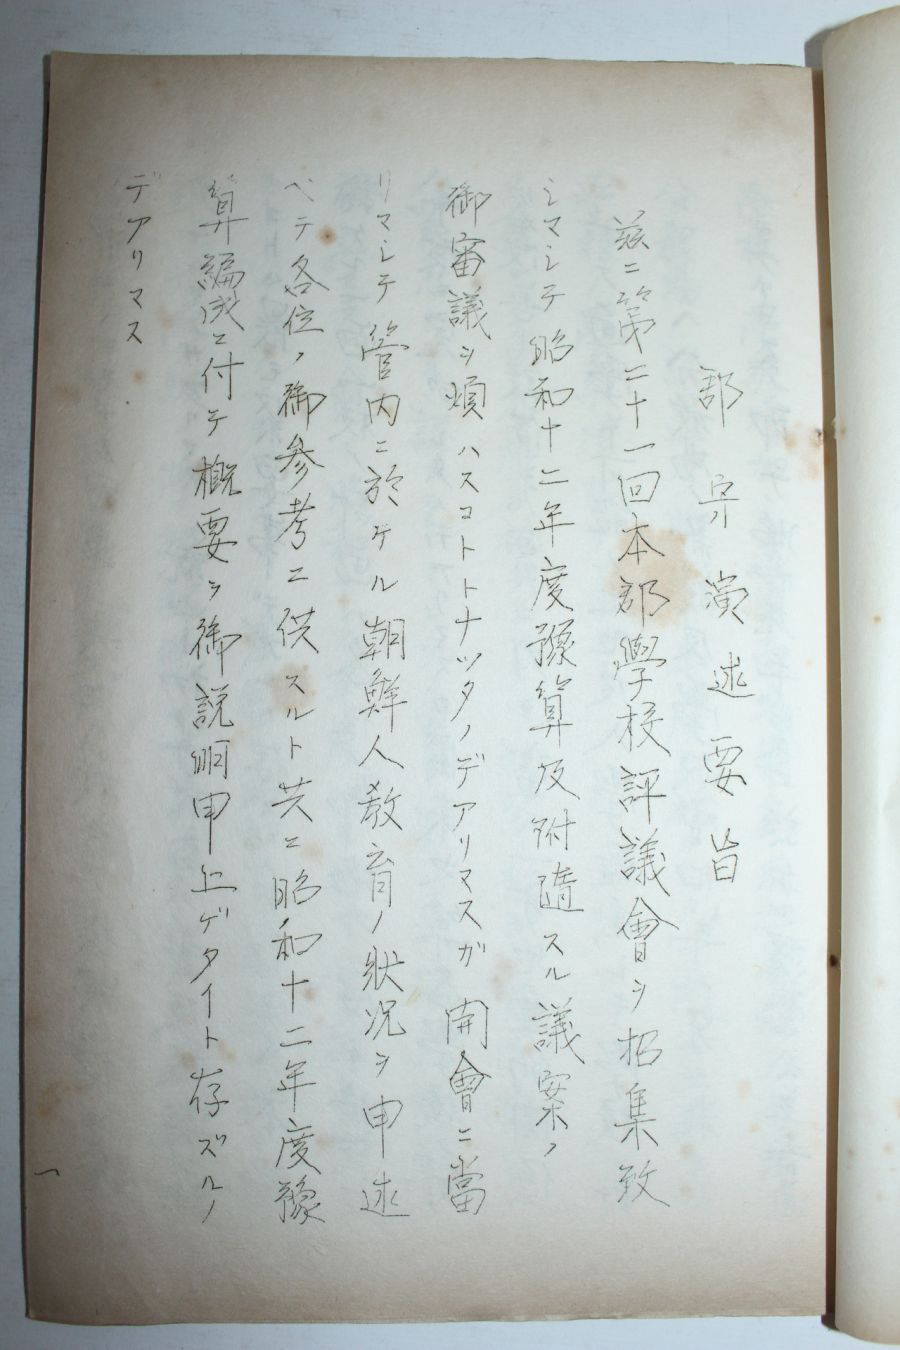 郡守演述要旨
茲ニ第二十一回本郡學校評議會ヲ招集致
シマシテ昭和十二年度豫算及附隨スル議案ノ
御審議ヲ煩ハスコトトナツタノデアリマスガ開會ニ當
リマシテ管内ニ於ケル朝鮮人教育ノ狀況ヲ申述
ベテ各位ノ御參考ニ供スルト共ニ昭和十二年度豫
算編成ニ付テ概要ヲ御說明申上ゲタイト存ズルノ
デアリマス
一